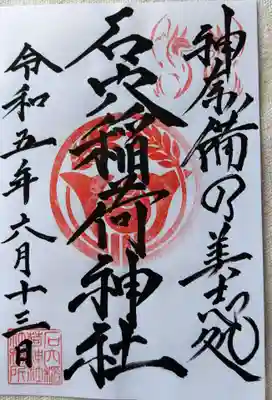 神奈備の美志処
石穴稲荷神社
令和五年六月十三日